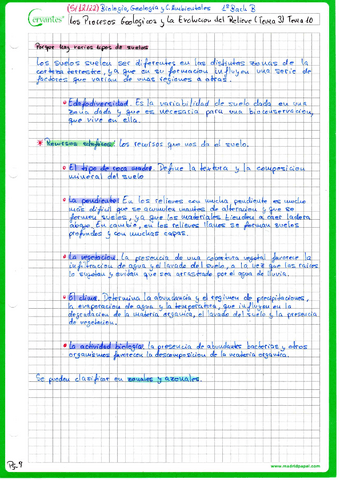 Cervantes (5/12/22) Biología, Geología y C. Ambientales 1º Bach B
Los Procesos Geológicos y la Evolución del Relieve (Tema 3) Tema 10
Porque hay varios tipos de suelos
Los suelos suelen ser diferentes en las distintas zonas de la
corteza terrestre, ya que en su formación influyen una serie de
factores que varían de unas regiones a otras.
• Edafodiversidad. Es la variabilidad de suelo dada en una
zona dada y que es necesaria para una bioconservación,
que vive en ella.
* Recursos edáficos: los recursos que nos da el suelo.
• El tipo de roca madre. Define la textura y la composición
mineral del suelo
• La pendiente. En los relieves con mucha pendiente es mucho
más difícil que se acumulen mantos de alteración y que se
formen suelos, ya que los materiales tienden a caer ladera
abajo. En cambio, en los relieves llanos se forman suelos
profundos y con muchas capas.
• La vegetación. La presencia de una cobertura vegetal favorece la
infiltración de agua y el lavado del suelo, a la vez que las raíces
lo sujetan y evitan que sea arrastrado por el agua de lluvia.
• El clima. Determina la abundancia y el régimen de precipitaciones,
la evaporación de agua y la temperatura, que influyen en la
degradación de la materia orgánica, el lavado del suelo y la presencia
de vegetación.
• La actividad biológica. la presencia de abundantes bacterias y otros
organismos favorecen la descomposición de la materia orgánica.
Se pueden clasificar en zonales y azonales.
Pg. 9
www.madridpapel.com